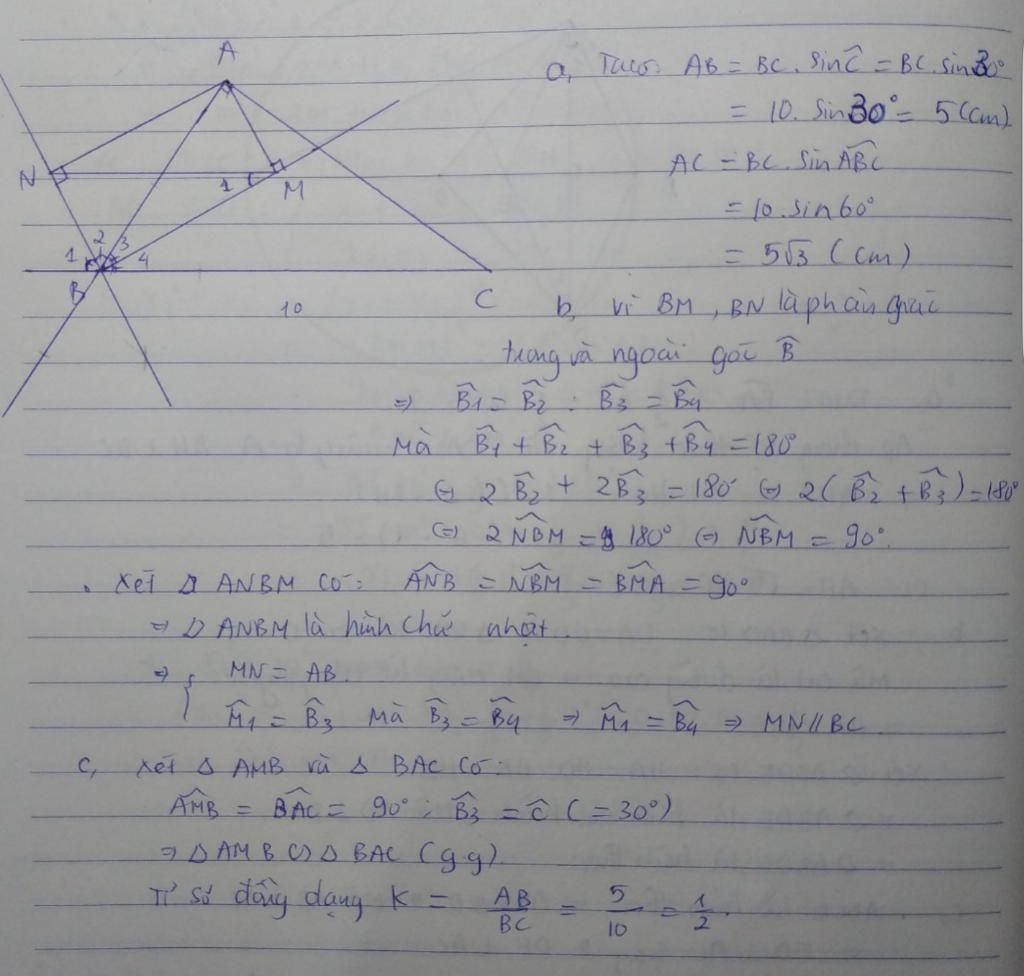 A
N
M
1
1 2 3 4
B
C
10
a, Ta có: AB = BC . sin Ĉ = BC . sin30°
= 10. sin30° = 5 (cm)
AC = BC . sin ABC
= 10 . sin60°
= 5√3 (cm)
b, vì BM, BN là phân giác
trong và ngoài góc B̂
⇒ B̂1 = B̂2 ; B̂3 = B̂4
Mà B̂1 + B̂2 + B̂3 + B̂4 = 180°
⇔ 2 B̂2 + 2B̂3 = 180° ⇔ 2(B̂2 + B̂3) = 180°
⇔ 2 NBM = 180° ⇔ NBM = 90°.
. Xét ▱ ANBM có: ANB = NBM = BMA = 90°
⇒ ▱ ANBM là hình chữ nhật.
⇒ { MN = AB.
M̂1 = B̂3 mà B̂3 = B̂4 ⇒ M̂1 = B̂4 ⇒ MN // BC.
c, Xét Δ AMB và Δ BAC có:
AMB = BAC = 90° ; B̂3 = Ĉ (= 30°)
⇒ Δ AMB ∽ Δ BAC (g.g)
Tỉ số đồng dạng K = AB/BC = 5/10 = 1/2.